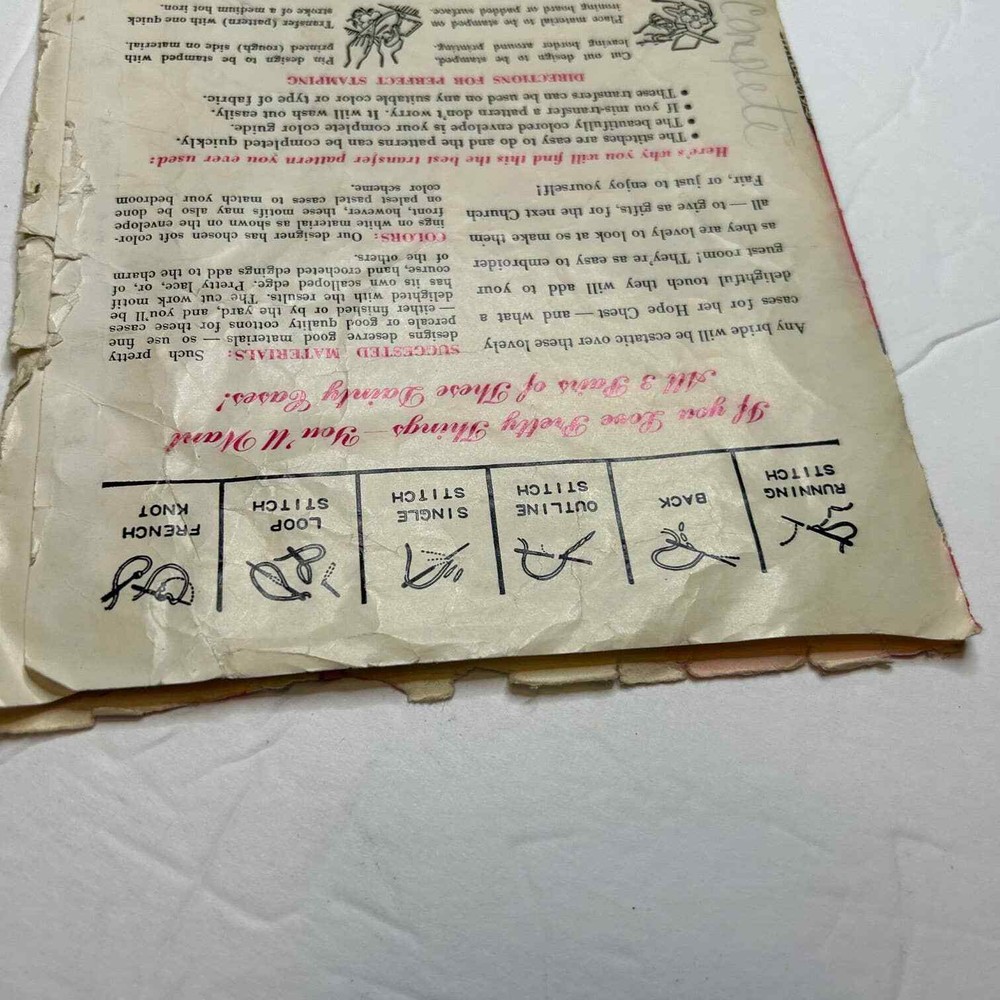 RUNNING
STITCH
BACK
OUTLINE
STITCH
SINGLE
STITCH
LOOP
STITCH
FRENCH
KNOT
If you Love Pretty Things — You'll Want
All 3 Pairs of These Dainty Cases!
Any bride will be ecstatic over these lovely
cases for her Hope Chest — and what a
delightful touch they will add to your
guest room! They're as easy to embroider
as they are lovely to look at so make them
all — to give as gifts, for the next Church
Fair, or just to enjoy yourself!
SUGGESTED MATERIALS: Such pretty
designs deserve good materials — so use fine
percale or good quality cottons for these cases
— either finished or by the yard, and you'll be
delighted with the results. The cut work motif
has its own scalloped edge. Pretty lace, or, of
course, hand crocheted edgings add to the charm
of the others.
COLORS: Our designer has chosen soft color-
ings on white material as shown on the envelope
front, however, these motifs may also be done
on palest pastel cases to match your bedroom
color scheme.
Here's why you will find this the best transfer pattern you ever used:
• The stitches are easy to do and the patterns can be completed quickly.
• The beautifully colored envelope is your complete color guide.
• If you mis-transfer a pattern don't worry. It will wash out easily.
• These transfers can be used on any suitable color or type of fabric.
DIRECTIONS FOR PERFECT STAMPING
Cut out design to be stamped
leaving border around printing.
Place material to be stamped on
ironing board or padded surface.
Pin design to be stamped with
printed (rough) side on material.
Transfer (pattern) with one quick
stroke of a medium hot iron.